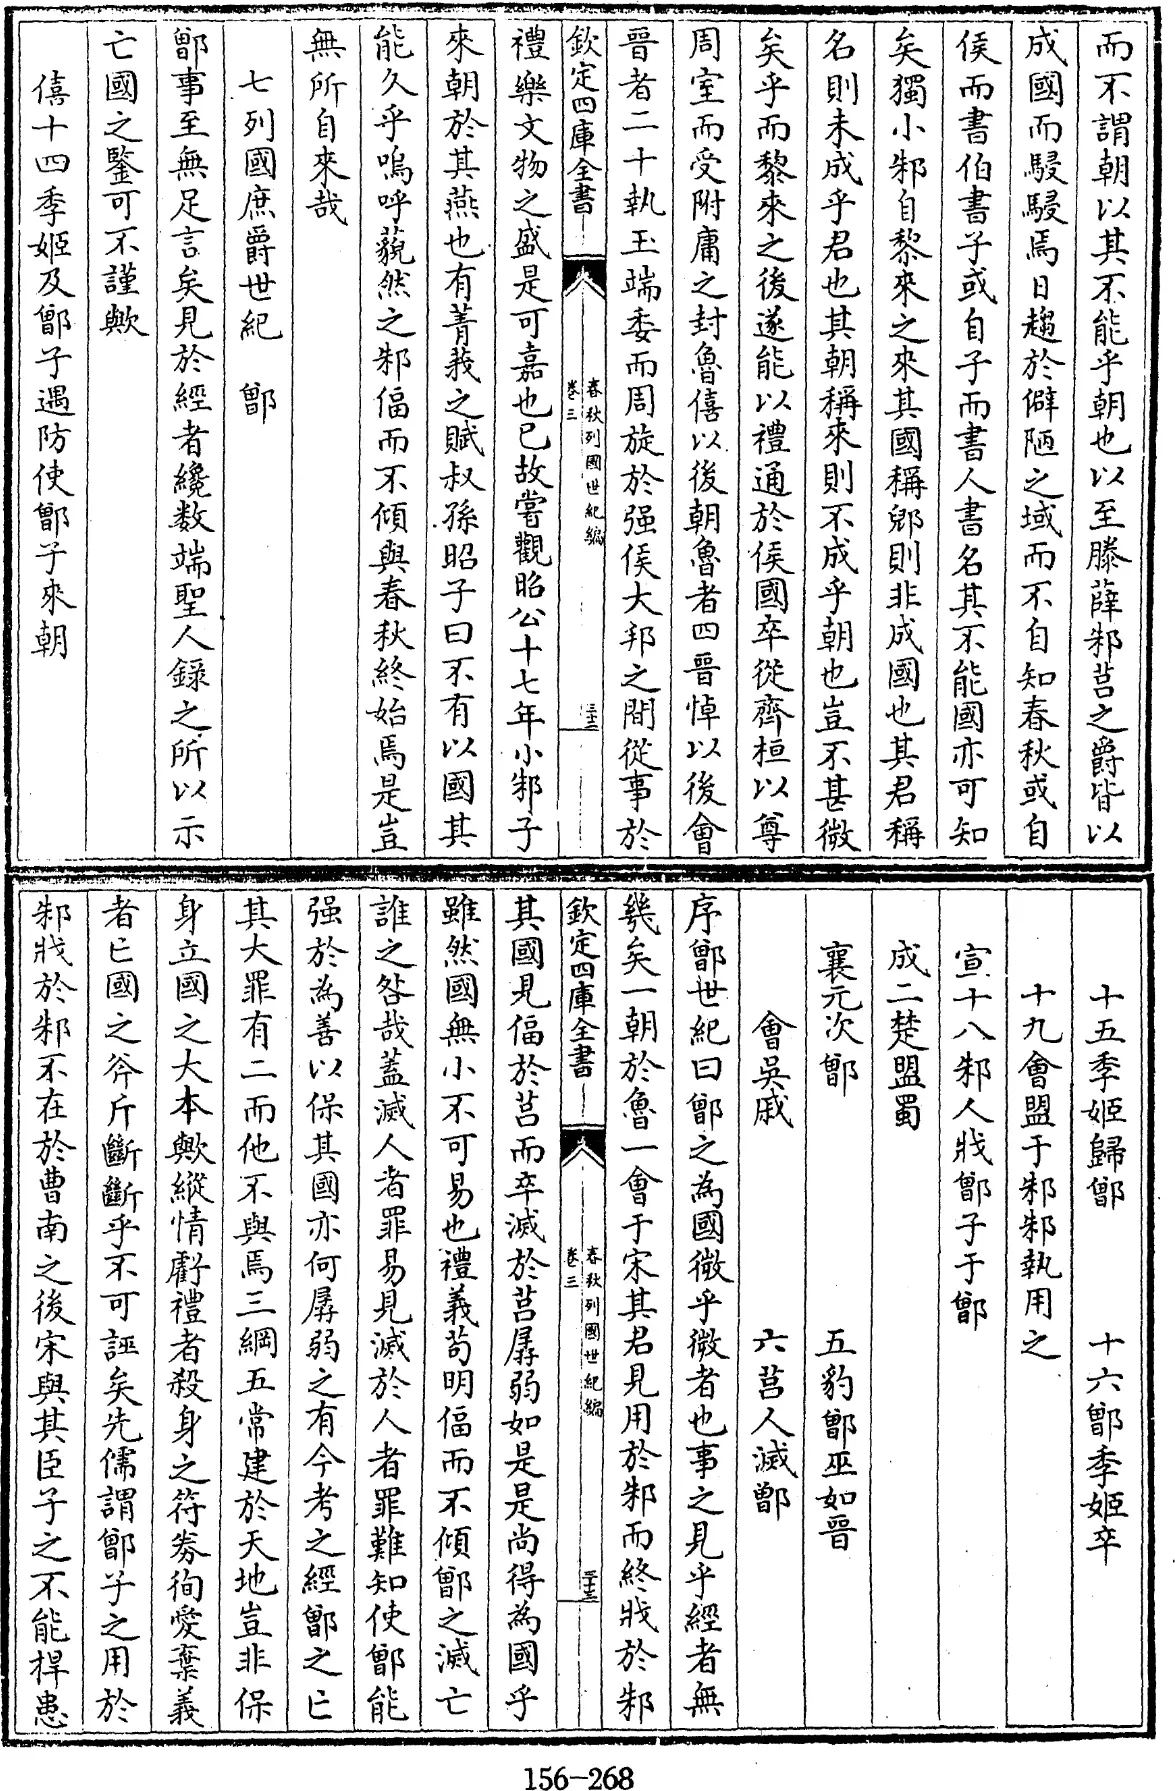 而不謂朝以其不能乎朝也以至滕薛邾莒之爵皆以
成國而駸駸焉日趨於僻陋之域而不自知春秋或自
侯而書伯書子或自子而書人書名其不能國亦可知
矣獨小邾自黎來之來其國稱郷則非成國也其君稱
名則未成乎君也其朝稱來則不成乎朝也豈不甚微
矣乎而黎來之後遂能以禮通於侯國卒從齊桓以尊
周室而受附庸之封魯僖以後朝魯者四晉悼以後會
晉者二十執玉端委而周旋於强侯大邦之間從事於
欽定四庫全書
春秋列國世紀編
卷三
三十二
禮樂文物之盛是可嘉也已故嘗觀昭公十七年小邾子
來朝於其燕也有菁莪之賦叔孫昭子曰不有以國其
能久乎嗚呼藐然之邾偪而不傾與春秋終始焉是豈
無所自來哉
七列國庶爵世紀 鄫
鄫事至無足言矣見於經者纔数端聖人録之所以示
亡國之鑒可不謹歟
僖十四季姬及鄫子遇防使鄫子來朝
十五季姬歸鄫 十六鄫季姬卒
十九會盟于邾邾執用之
宣十八邾人戕鄫子于鄫
成二楚盟蜀
襄元次鄫 五豹鄫巫如晉
會吳戚 六莒人滅鄫
序鄫世紀曰鄫之為國微乎微者也事之見乎經者無
幾矣一朝於魯一會于宋其君見用於邾而終戕於邾
欽定四庫全書
春秋列國世紀編
卷三
三十三
其國見偪於莒而卒滅於莒孱弱如是是尚得為國乎
雖然國無小不可易也禮義苟明偪而不傾鄫之滅亡
誰之咎哉蓋滅人者罪易見滅於人者罪難知使鄫能
强於為善以保其國亦何孱弱之有今考之經鄫之亡
其大罪有二而他不與焉三綱五常建於天地豈非保
身立國之大本歟縱情虧禮者殺身之符券徇愛棄義
者亡國之斧斤斷斷乎不可誣矣先儒謂鄫子之用於
邾戕於邾不在於曹南之後宋與其臣子之不能捍患
156-268